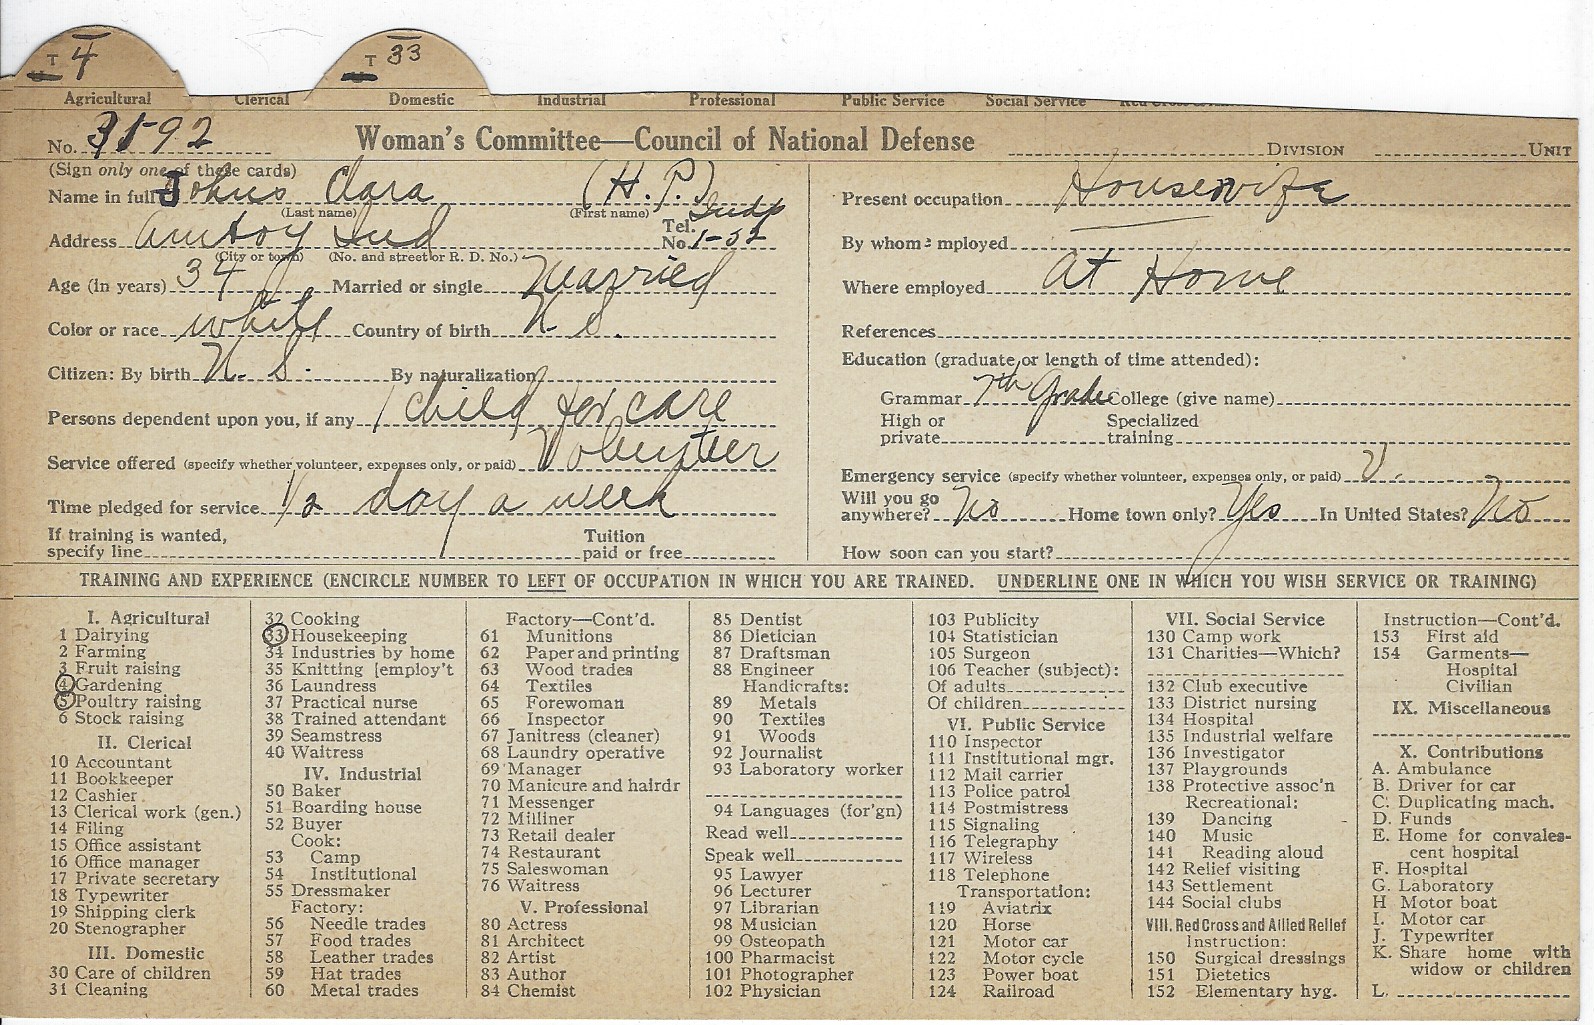 T 4 T 33
Agricultural Clerical Domestic Industrial Professional Public Service Social Service
No. 3592 Woman's Committee—Council of National Defense DIVISION UNIT
(Sign only one of these cards)
Name in full Johns Clara (H. P.)
(Last name) (First name)
Address Amboy Ind Tel. No. 1-52
(City or town) (No. and street or R. D. No.)
Age (in years) 34 Married or single Married
Color or race white Country of birth U. S.
Citizen: By birth U. S. By naturalization
Persons dependent upon you, if any 1 child for care
Service offered (specify whether volunteer, expenses only, or paid) Volunteer
Time pledged for service 1/2 day a week
If training is wanted, Tuition
specify line paid or free
Present occupation Housewife
By whom employed
Where employed at Home
References
Education (graduate or length of time attended):
Grammar 7th Grade College (give name)
High or Specialized
private training
Emergency service (specify whether volunteer, expenses only, or paid) V.
Will you go
anywhere? No Home town only? Yes In United States? No
How soon can you start?
TRAINING AND EXPERIENCE (ENCIRCLE NUMBER TO LEFT OF OCCUPATION IN WHICH YOU ARE TRAINED. UNDERLINE ONE IN WHICH YOU WISH SERVICE OR TRAINING)
I. Agricultural
1 Dairying
2 Farming
3 Fruit raising
4 Gardening
5 Poultry raising
6 Stock raising
II. Clerical
10 Accountant
11 Bookkeeper
12 Cashier
13 Clerical work (gen.)
14 Filing
15 Office assistant
16 Office manager
17 Private secretary
18 Typewriter
19 Shipping clerk
20 Stenographer
III. Domestic
30 Care of children
31 Cleaning
32 Cooking
33 Housekeeping
34 Industries by home
35 Knitting [employ't
36 Laundress
37 Practical nurse
38 Trained attendant
39 Seamstress
40 Waitress
IV. Industrial
50 Baker
51 Boarding house
52 Buyer
Cook:
53 Camp
54 Institutional
55 Dressmaker
Factory:
56 Needle trades
57 Food trades
58 Leather trades
59 Hat trades
60 Metal trades
Factory—Cont'd.
61 Munitions
62 Paper and printing
63 Wood trades
64 Textiles
65 Forewoman
66 Inspector
67 Janitress (cleaner)
68 Laundry operative
69 Manager
70 Manicure and hairdr
71 Messenger
72 Milliner
73 Retail dealer
74 Restaurant
75 Saleswoman
76 Waitress
V. Professional
80 Actress
81 Architect
82 Artist
83 Author
84 Chemist
85 Dentist
86 Dietician
87 Draftsman
88 Engineer
Handicrafts:
89 Metals
90 Textiles
91 Woods
92 Journalist
93 Laboratory worker
94 Languages (for'gn)
Read well
Speak well
95 Lawyer
96 Lecturer
97 Librarian
98 Musician
99 Osteopath
100 Pharmacist
101 Photographer
102 Physician
103 Publicity
104 Statistician
105 Surgeon
106 Teacher (subject):
Of adults
Of children
VI. Public Service
110 Inspector
111 Institutional mgr.
112 Mail carrier
113 Police patrol
114 Postmistress
115 Signaling
116 Telegraphy
117 Wireless
118 Telephone
Transportation:
119 Aviatrix
120 Horse
121 Motor car
122 Motor cycle
123 Power boat
124 Railroad
VII. Social Service
130 Camp work
131 Charities—Which?
132 Club executive
133 District nursing
134 Hospital
135 Industrial welfare
136 Investigator
137 Playgrounds
138 Protective assoc'n
Recreational:
139 Dancing
140 Music
141 Reading aloud
142 Relief visiting
143 Settlement
144 Social clubs
VIII. Red Cross and Allied Relief
Instruction:
150 Surgical dressings
151 Dietetics
152 Elementary hyg.
Instruction—Cont'd.
153 First aid
154 Garments—
Hospital
Civilian
IX. Miscellaneous
X. Contributions
A. Ambulance
B. Driver for car
C. Duplicating mach.
D. Funds
E. Home for convales-
cent hospital
F. Hospital
G. Laboratory
H Motor boat
I. Motor car
J. Typewriter
K. Share home with
widow or children
L.